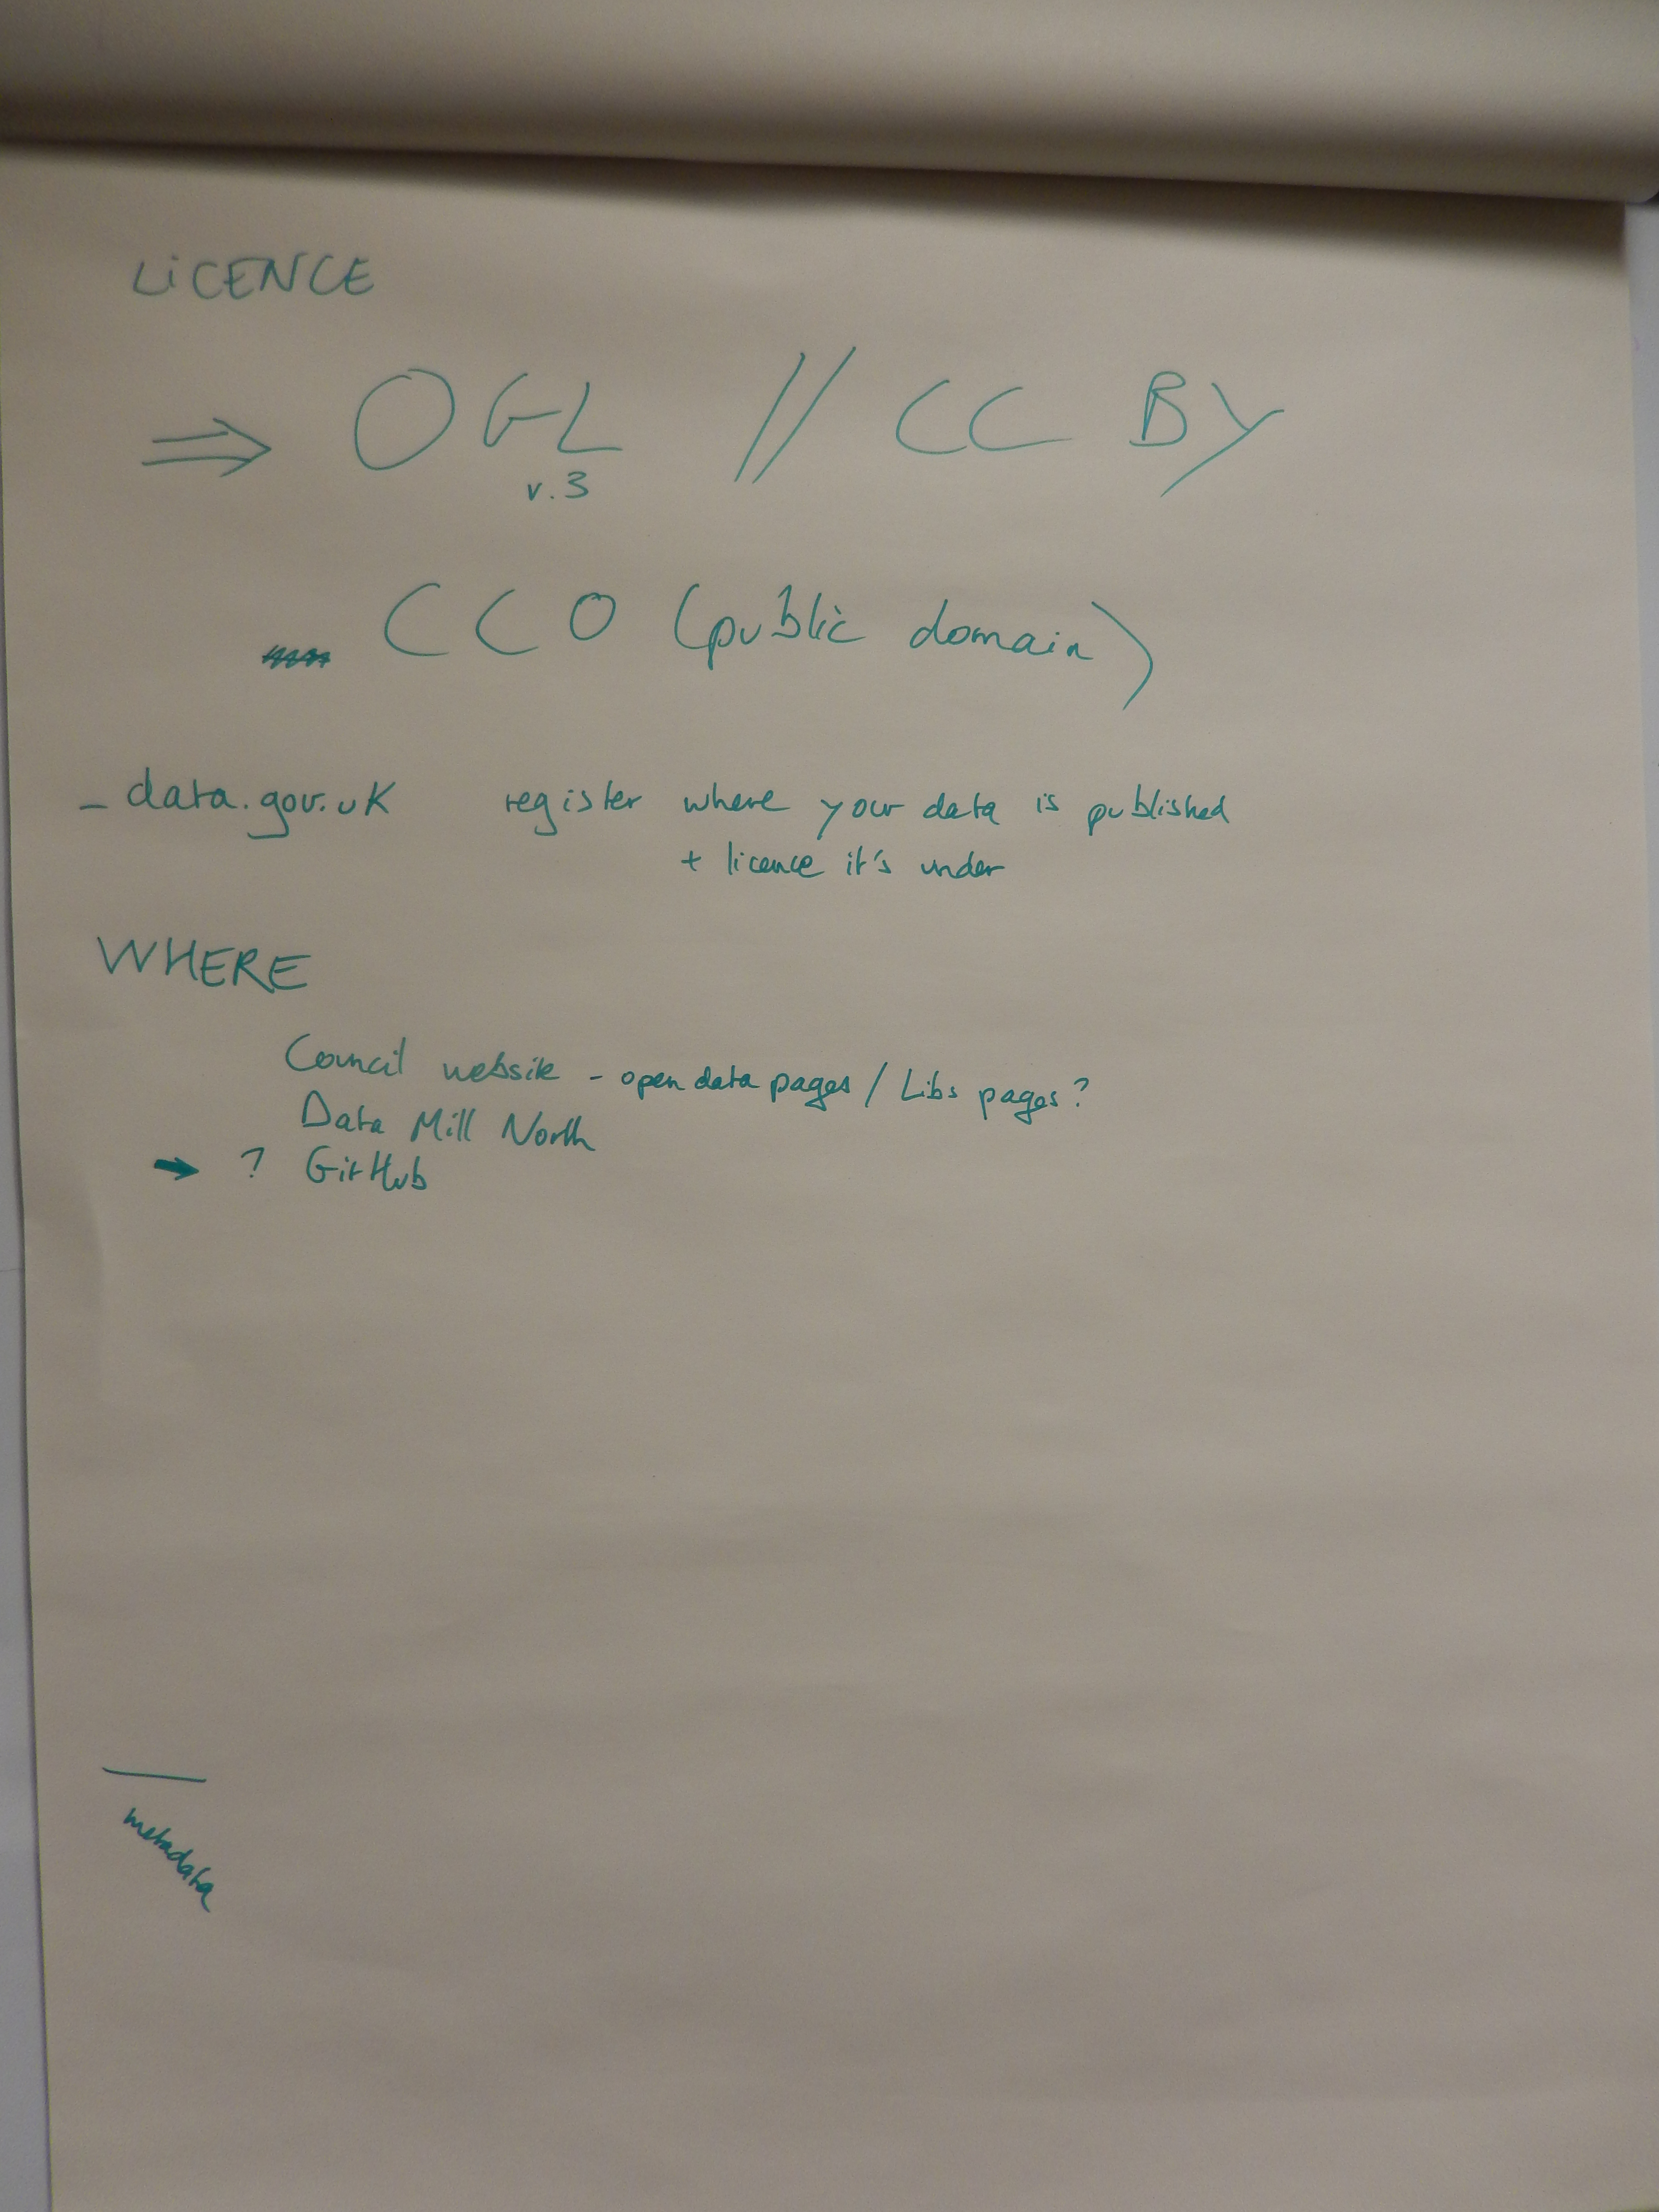 LiCENCE
⇒ OGL // CC BY
v.3
CC0 (public domain)
- data.gov.uk register where your data is published
+ licence it's under
WHERE
Council website - open data pages / Libs pages?
Data Mill North
→ ? GitHub
metadata